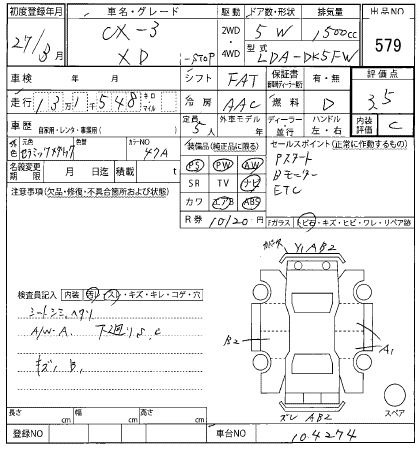 初度登録年月 車名・グレード 駆動 ドア数・形状 排気量 出品NO
27/3月 CX-3 2WD 5 W 1500cc 579
XD i-STOP 4WD 型式 LDA-DK5FW
車検 年 月 シフト FAT 保証書 有・無 評価点
走行 13万1千548 キロ・マイル 冷房 AAC 燃料 D 3.5
車歴 自家用・レンタ・事業用( ) 定員 5人 外車モデル 年 ディーラー・並行 ハンドル 左・右 内装評価 C
元色 セラミックメタリック 色替 カラーNO 47A
装備品(純正品に限る) セールスポイント(正常に作動するもの)
名義変更期限 月 日迄 積載 t
PS PW AW Pスタート
注意事項(欠品・修復・不具合箇所および状態) SR TV ナビ Bモニター
カワ エアB ABS ETC
R券 10120円
Fガラス トビ石・キズ・ヒビ・ワレ・リペア跡
Y1 A B2
検査員記入 内装 汚レ・スレ・キズ・キレ・コゲ・穴
シートシミ、ヘタリ
A/W-A. 下廻りS,C
キズ, B,
B2 A1
ズレ AB2 スペア
長さ cm 幅 cm 高さ cm
登録NO 車台NO 104274